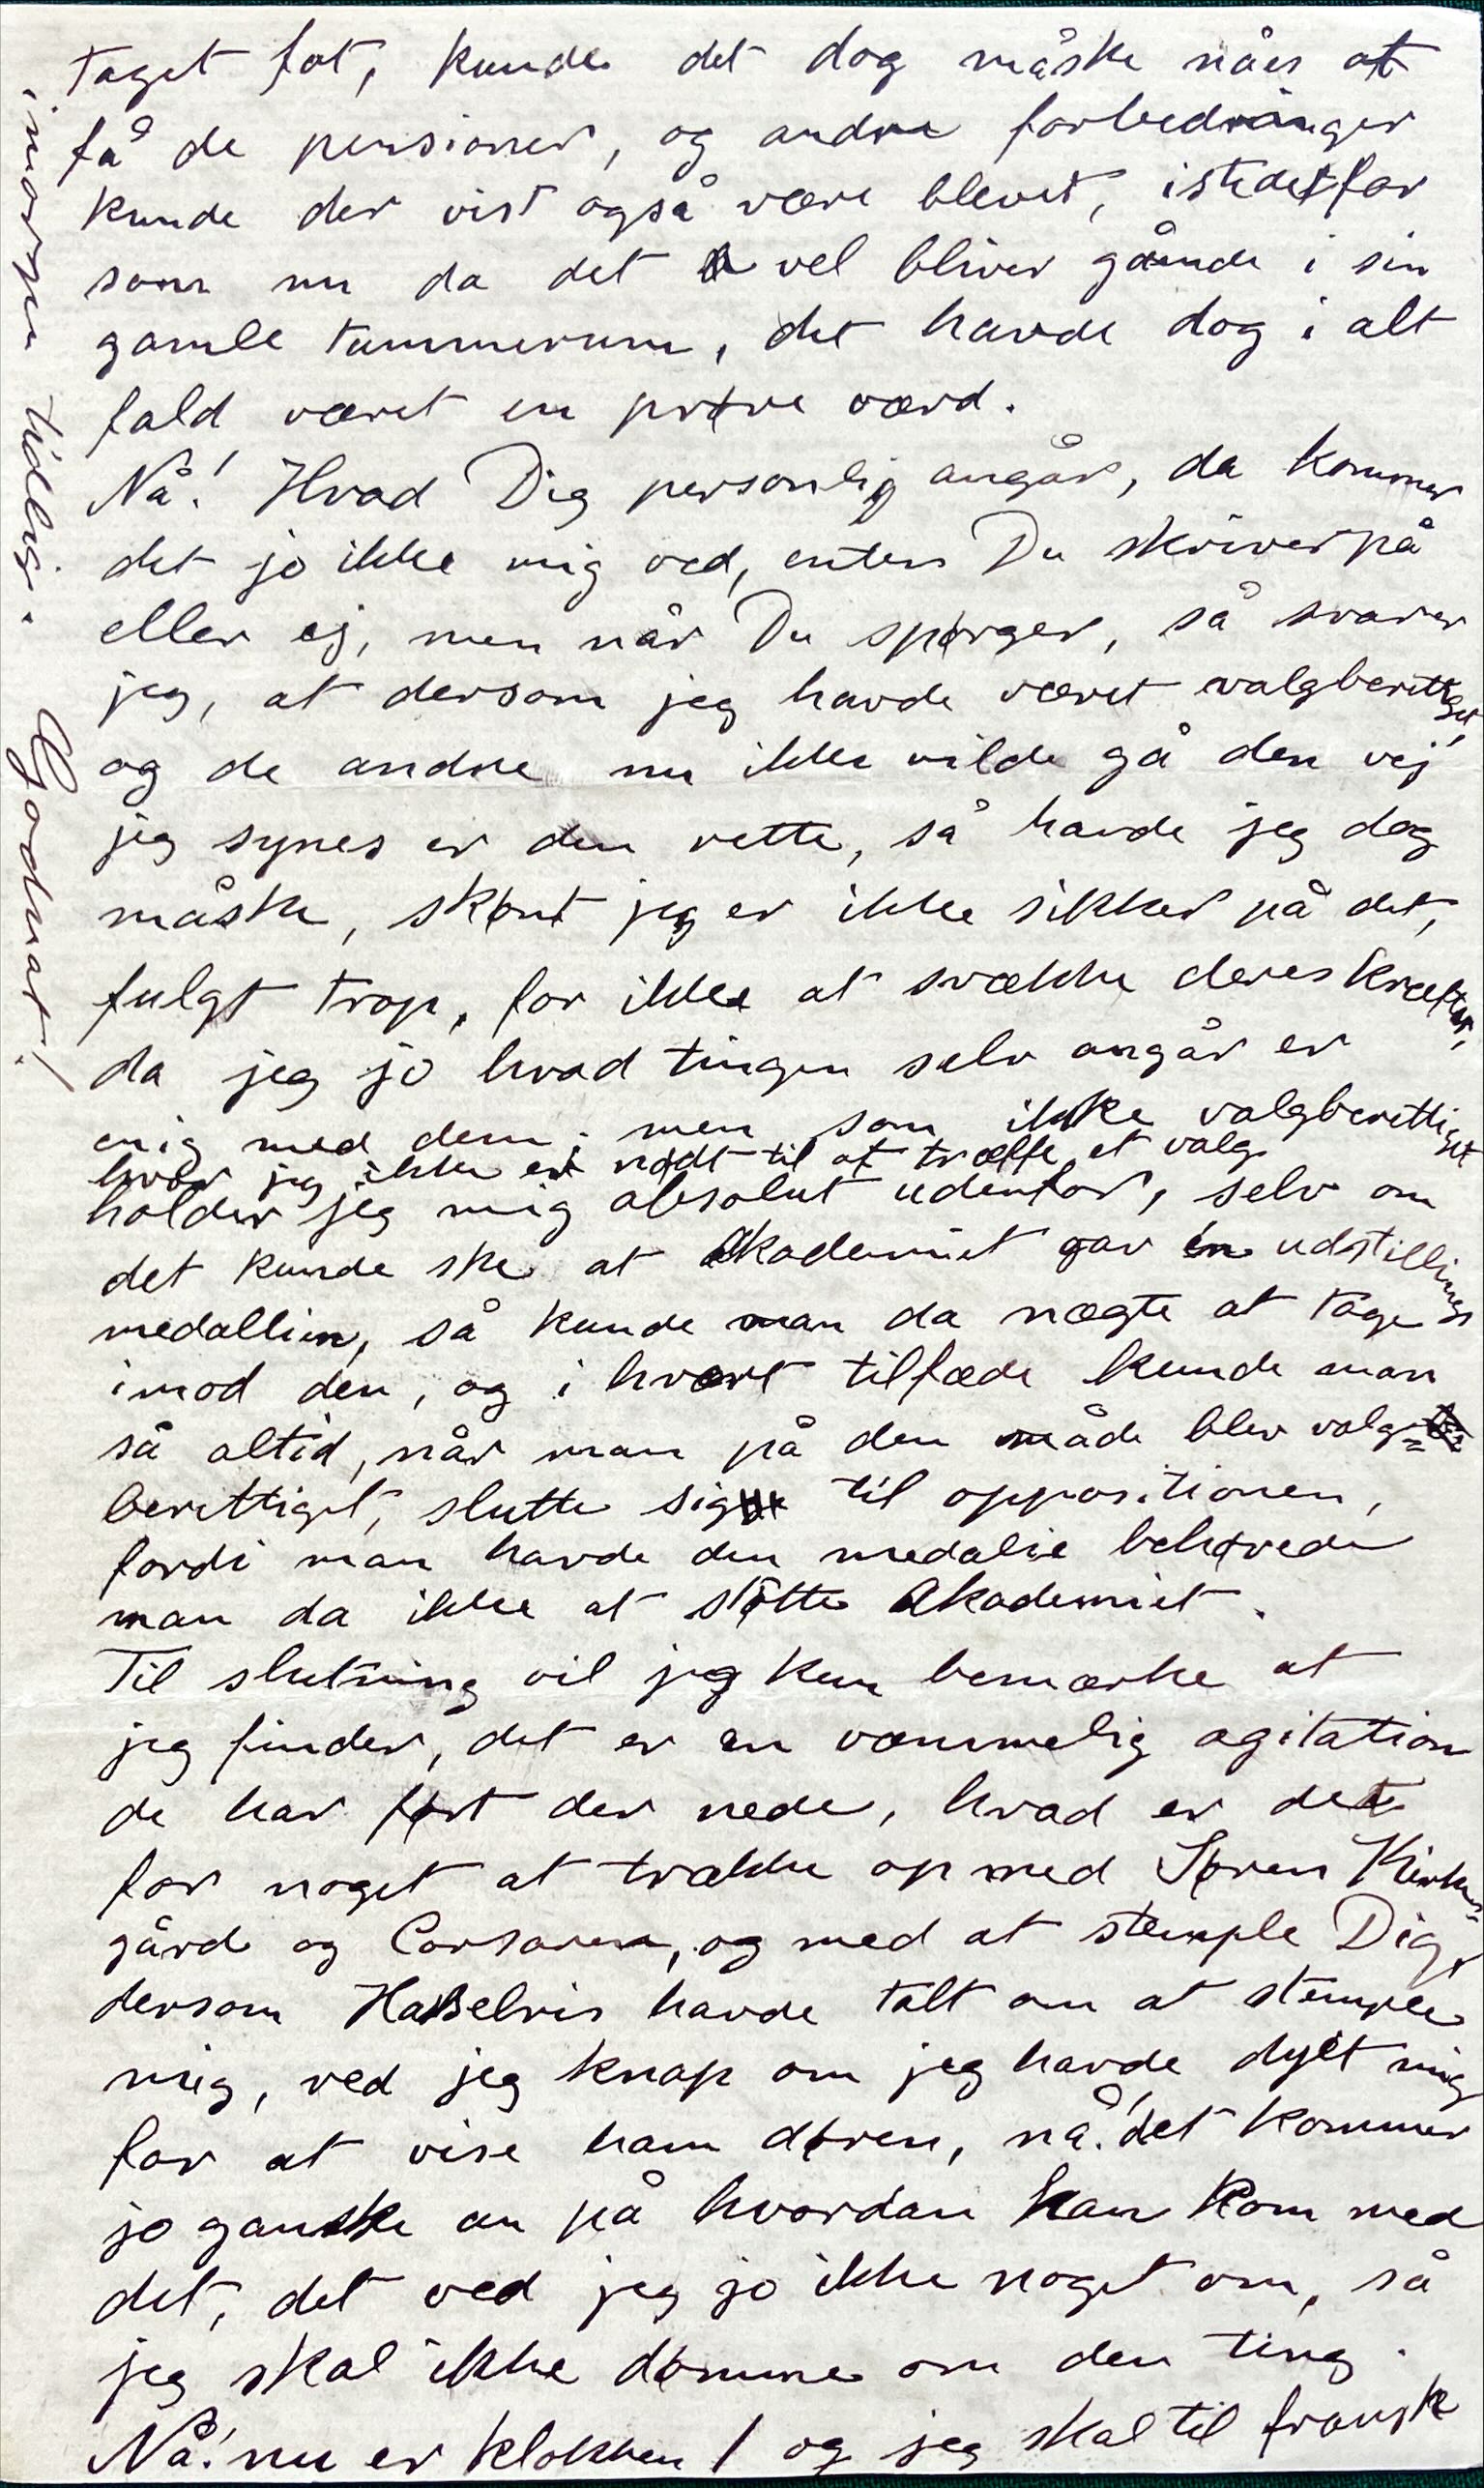 taget fat, kunde det dog måske nåes at
få de pensioner, og andre forbedringer
kunde der vist også være blevet, istedetfor
som nu da det vel bliver gående i sin
gamle tummerum, det havde dog i alt
fald været en prøve værd.
Nå! Hvad Dig personlig angår, da kommer
det jo ikke mig ved, enten Du skriver på
eller ej, men når Du spørger, så svarer
jeg, at dersom jeg havde været valgberettiget,
og de andre nu ikke vilde gå den vej
jeg synes er den rette, så havde jeg dog
måske, skønt jeg er ikke sikker på det,
fulgt trop, for ikke at svække deres kræfter,
da jeg jo hvad tingen selv angår er
enig med dem; men som ikke valgberettiget
hvor jeg ikke er nødt til at træffe et valg
holder jeg mig absolut udenfor, selv om
det kunde ske at Akademiet gav en udstillings
medallien, så kunde man da nægte at tage
imod den, og i hvert tilfæde kunde man
så altid, når man på den måde blev valg=
berettiget, slutte sig til oppositionen,
fordi man havde den medalie behøvede
man da ikke at støtte Akademiet.
Til slutning vil jeg kun bemærke at
jeg finder, det er en væmmelig agitation
de har ført der nede, hvad er det
for noget at trække op med Søren Kirke=
gård og Corsaren, og med at stemple Dig,
dersom Hasselriis havde talt om at stemple
mig, ved jeg knap om jeg havde dyet mig
for at vise ham døren, nå! det kommer
jo ganske an på hvordan han kom med
det, det ved jeg jo ikke noget om, så
jeg skal ikke dømme om den ting.
Nå! nu er klokken 1 og jeg skal til fransk
imorgen tidlig. Godnat!